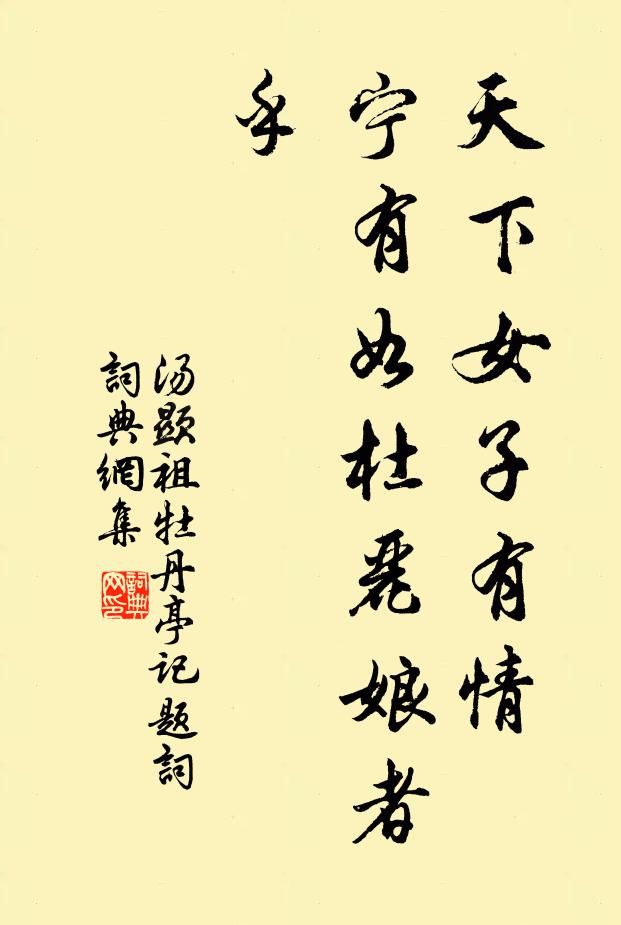 天下女子有情
宁有如杜丽娘者
乎
汤显祖牡丹亭记题詞
詞典網集
詞典网印